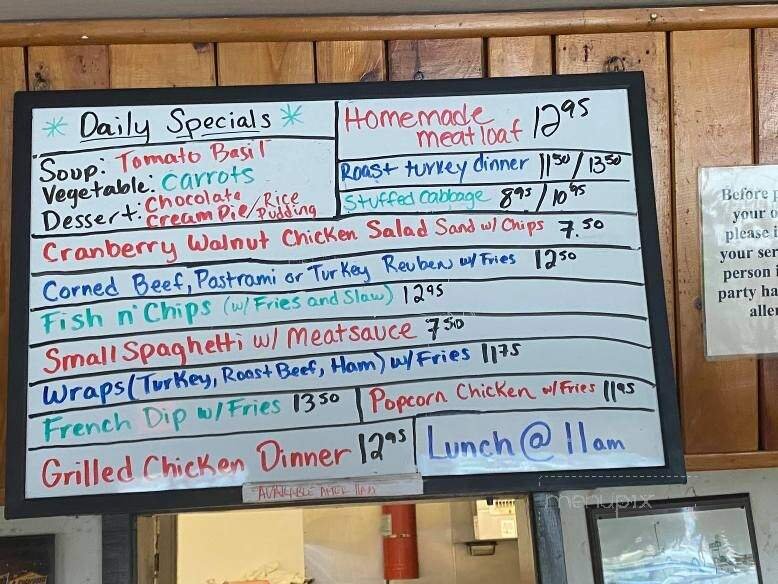 * Daily Specials *
Soup: Tomato Basil
Vegetable: Carrots
Dessert: Chocolate Cream Pie/Rice Pudding
Homemade
meatloaf 12 95
Roast turkey dinner 11 50 / 13 50
Stuffed Cabbage 8 95 / 10 95
Cranberry Walnut Chicken Salad Sand w/ Chips 7.50
Corned Beef, Pastrami or Turkey Reuben w/ Fries 12 50
Fish n' Chips (w/ Fries and Slaw) 12 95
Small Spaghetti w/ Meatsauce 7 50
Wraps (Turkey, Roast Beef, Ham) w/ Fries 11 75
French Dip w/ Fries 13 50
Popcorn Chicken w/ Fries 11 95
Grilled Chicken Dinner 12 95
Lunch @ 11am
AVAILABLE AFTER 11AM
Before
your
please i
your ser
person i
party ha
aller
menupix